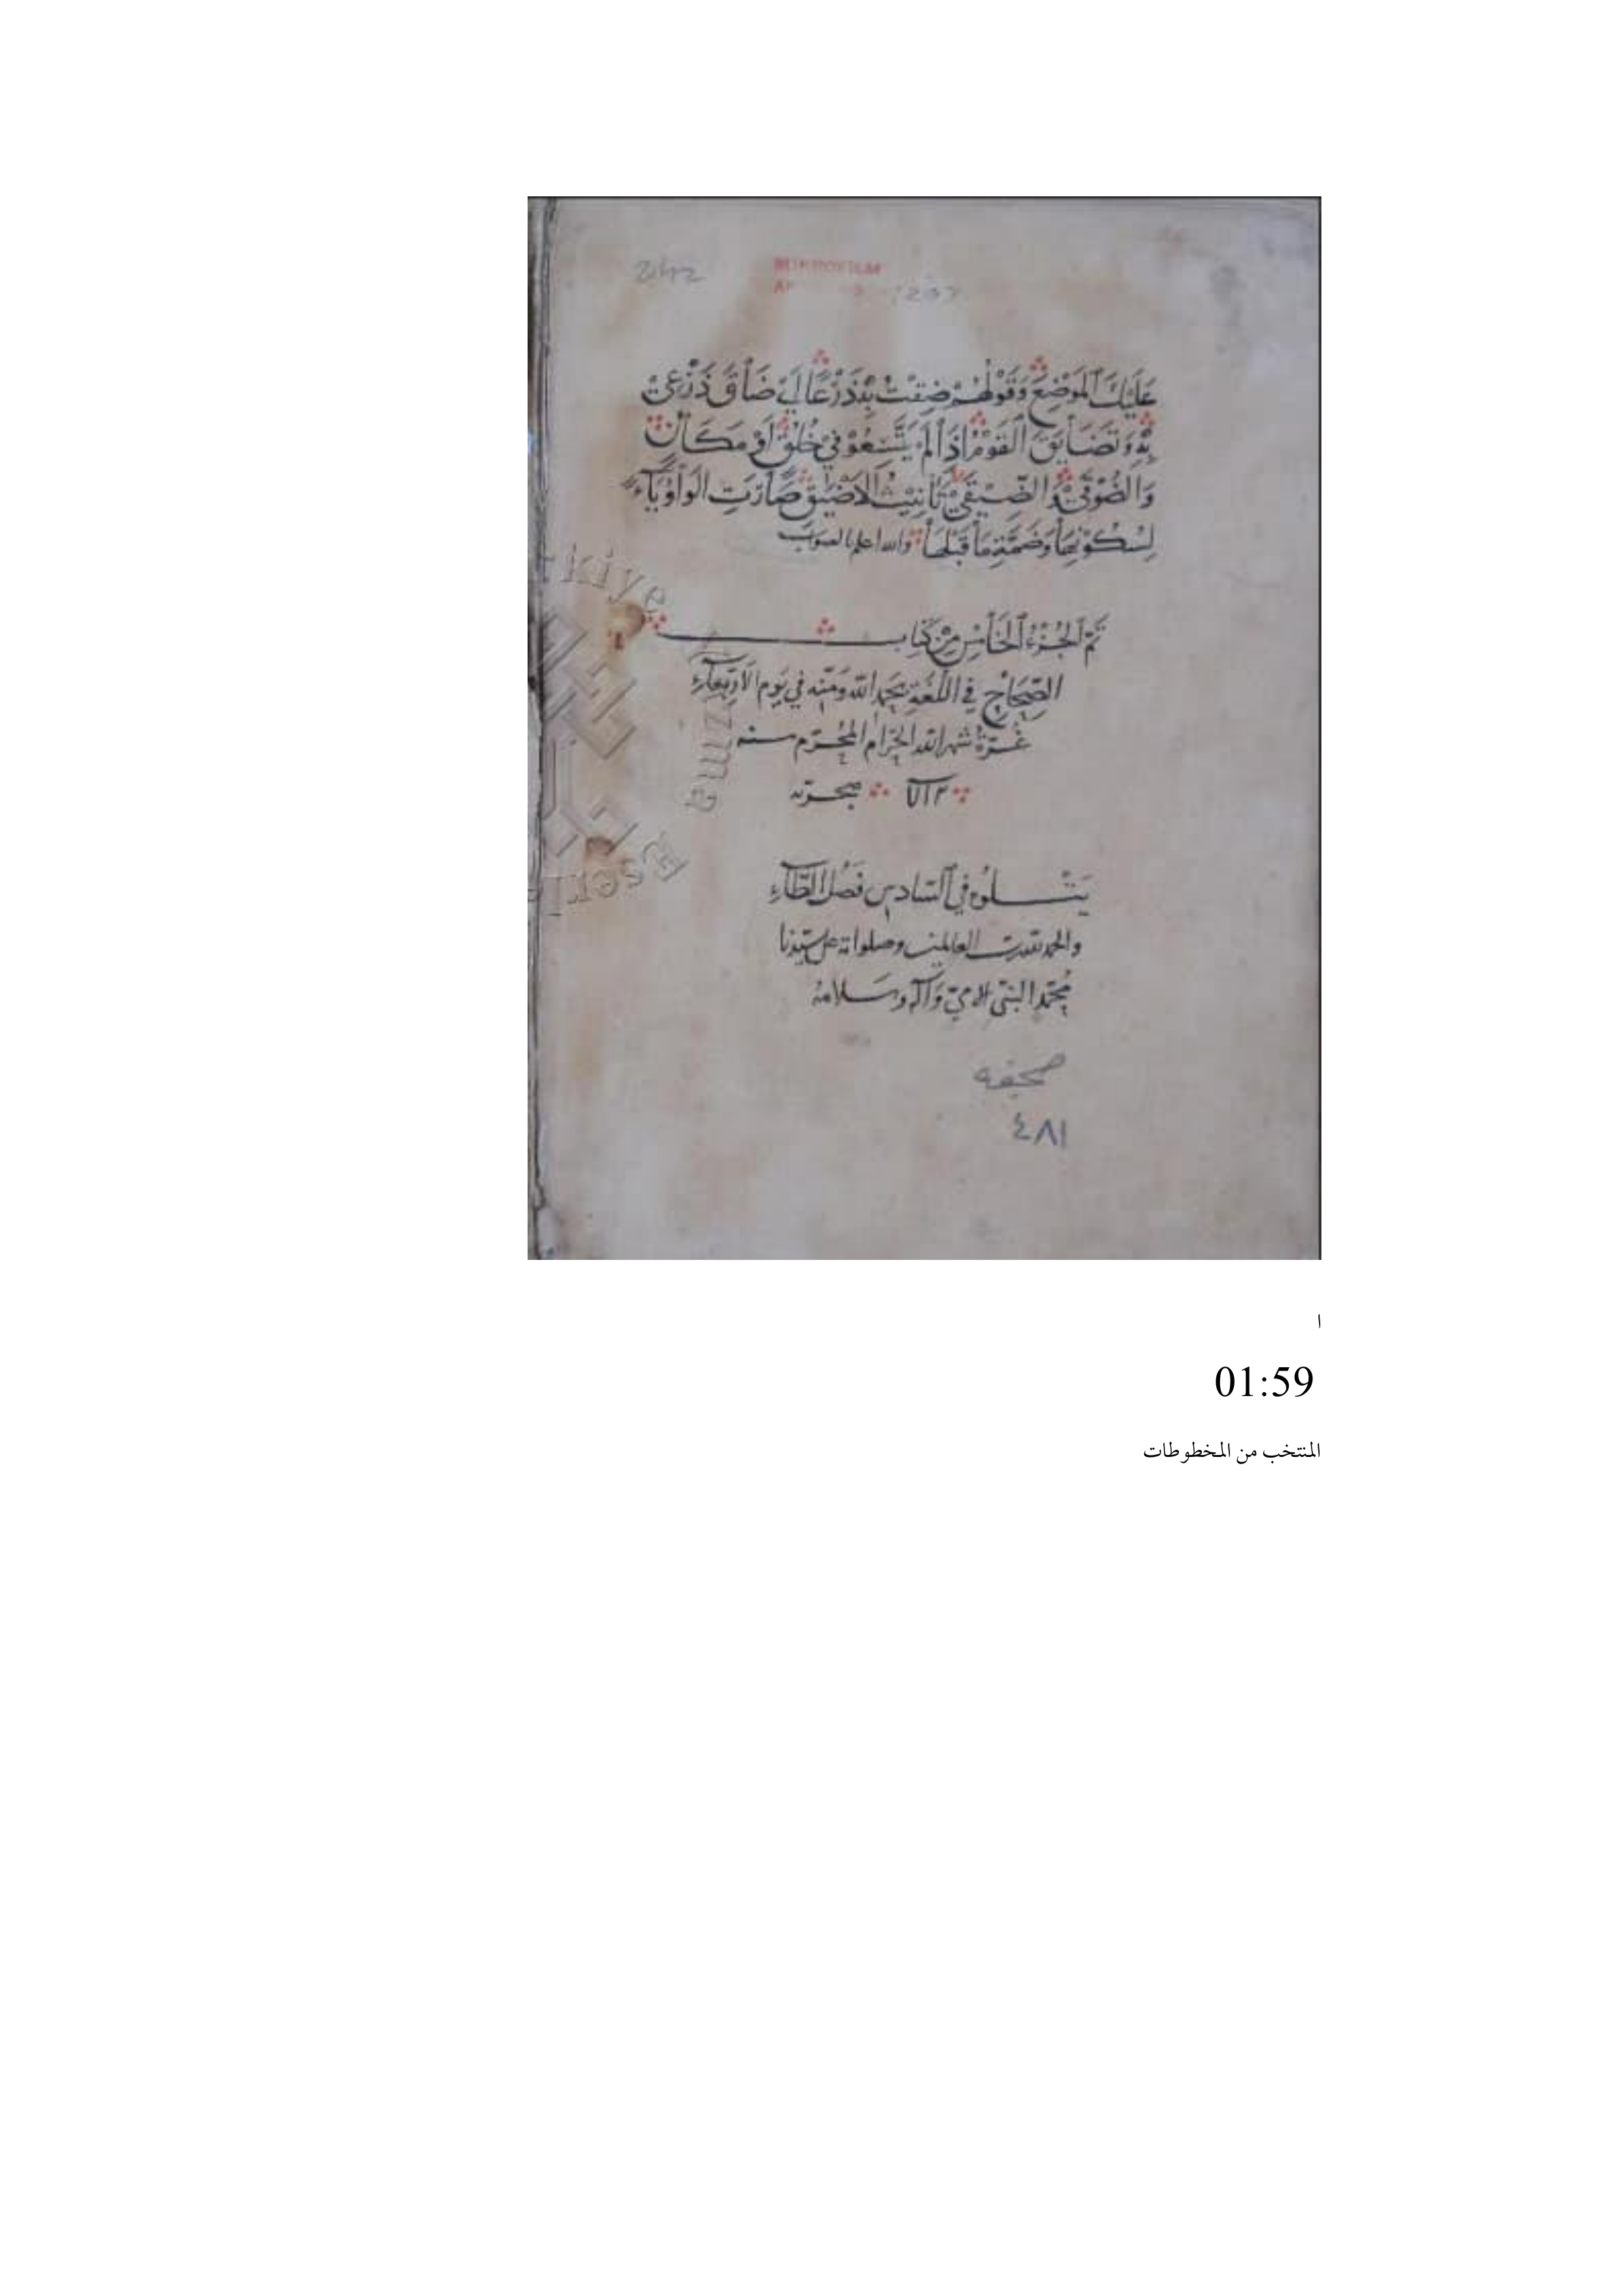 242
MIKROFILM
عَلَيْكَ المَوْضِعُ وَقَوْلُهُمْ ضِقْتُ بِهِ ذَرْعًا أَيْ ضَاقَ ذَرْعِيْ
بِهِ وَتَضَايَقَ القَوْمُ إِذَا لَمْ يَتَّسِعُوْا فِيْ خُلُقٍ أَوْ مَكَانٍ
وَالضُوْقَىْ وَالضِّيْقَىْ تَأْنِيْثُ الأَضْيَقِ صَارَتِ الوَاوُ يَاءً
لِسُكُوْنِهَا وَضَمَّةِ مَا قَبْلَهَا والله اعلم بالصواب
تَمَّ الجُزْءُ الخَامِسُ مِنْ كِتَاب
الصِّحَاحِ فِي اللُّغَةِ بحمد الله ومنّه في يوم الأربعاء
غُرّة شهر الله الحرام المحرّم سنه
يتلوه في السّادس فَصْلُ الطّاءِ
والحمد لله رب العالمين وصلواته على سيّدنا
مُحَمّد النبيّ الاميّ وآله وسلامه
صحيفه
٤٨١
Türkiye
Yazma
Eserler
ا
01:59
المنتخب من المخطوطات